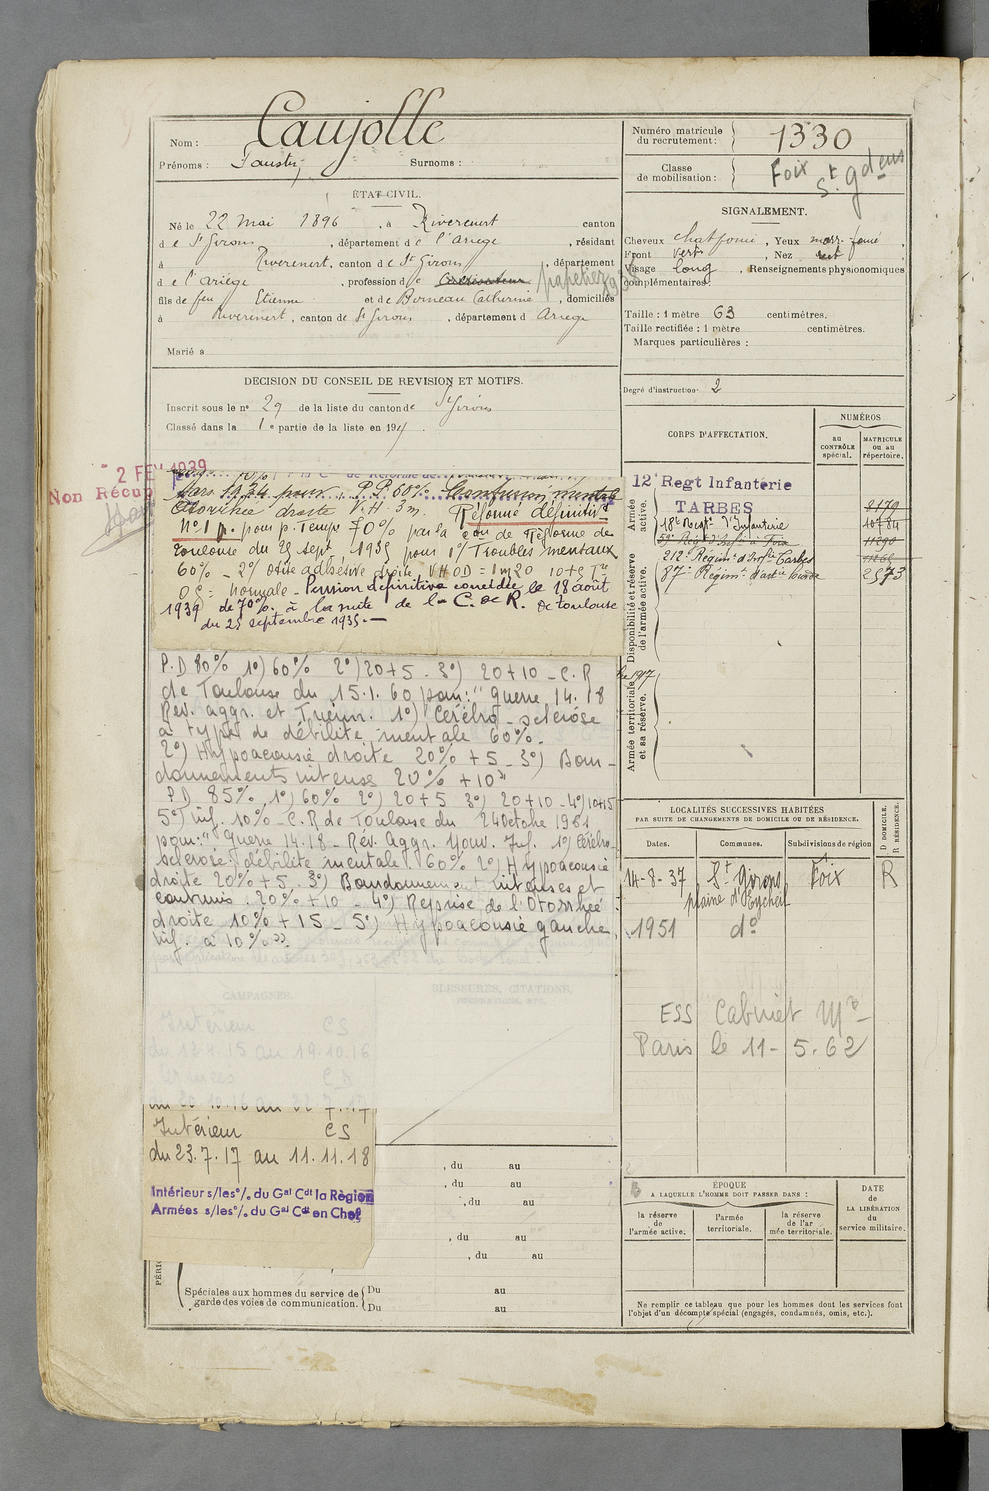 Nom : Caujolle
Prénoms : Faustin Surnoms :
ÉTAT CIVIL.
Né le 22 Mai 1896, à Riverenert canton
de St Girons, département de l'Ariège, résidant
à Riverenert, canton de St Girons, département
de l'Ariège, profession de papetier
fils de feu Etienne et de Catherine, domiciliés
à Riverenert, canton de St Girons, département d Ariège
Marié à
DECISION DU CONSEIL DE REVISION ET MOTIFS.
Inscrit sous le n° 29 de la liste du canton de St Girons
Classé dans la 1e partie de la liste en 191
2 FEV 1939
Non Récup
Mars 1934 pour P.P. 60%
droite V.H. 3m. Réformé définitif
N° 1 p. pour p. Temps 70% par la Con de Réforme de
Toulouse du 25 sept. 1935 pour 1°/ Troubles mentaux
60% - 2°/ Otite adhésive droite VHOD = 1m20 10+5
OG = normale - Pension définitive concédée le 18 août
1939 de 70% à la suite de la C. de R. de Toulouse
du 25 septembre 1935. —
P.D 80% 1°) 60% 2°) 20+5 - 3°) 20+10 - C.R
de Toulouse du 15.1.60 pour : " Guerre 14.18
Rev. aggr. et Trienn. 1°) Cérébro-sclérose
à type de débilité mentale 60%.
2°) Hypoacousie droite 20% +5 - 3°) Bour-
donnements intense 20% +10"
P.D 85% 1°) 60% 2°) 20+5 3°) 20+10 - 4°) 10+15
5°) inf. 10% - C.R de Toulouse du 24 Octobre 1961
pour : " Guerre 14.18 - Rév. Aggr. Nouv. Inf. 1°) Cérébro-
sclérose débilité mentale 60% 2°) Hypoacousie
droite 20% +5 . 3°) Bourdonnement intenses et
continus . 20% +10 - 4°) Reprise de l'Otorrhée
droite 10% +15 - 5°) Hypoacousie gauche
inf. à 10% "
CAMPAGNES.
BLESSURES, CITATIONS,
Intérieur CS
du 19.10.16
Intérieur CS
du 23.7.17 au 11.11.18
Intérieur s/les°/. du Gal Cdt la Région
Armées s/les°/. du Gal Cdt en Chef
, du au
, du au
, du au
, du au
, du au
Spéciales aux hommes du service de garde des voies de communication. { Du au
Du au
Numéro matricule du recrutement : 1330
Classe de mobilisation : Foix St Gdens
SIGNALEMENT.
Cheveux chat foncé, Yeux marr. foncé,
Front vert, Nez rect
Visage long, Renseignements physionomiques
complémentaires :
Taille : 1 mètre 63 centimètres.
Taille rectifiée : 1 mètre centimètres.
Marques particulières :
Degré d'instruction : 2
CORPS D'AFFECTATION.
NUMÉROS
au CONTRÔLE spécial.
MATRICULE ou au répertoire.
Armée active.
Disponibilité et réserve de l'armée active.
Armée territoriale et sa réserve.
12e Regt Infanterie
TARBES 2179
18e Regt d'Infanterie 10784
59e Regt d'Infie à Foix 11290
212e Régimt d'Infie Tarbes
87e Régimt d'artie lourde 2573
LOCALITÉS SUCCESSIVES HABITÉES
PAR SUITE DE CHANGEMENTS DE DOMICILE OU DE RÉSIDENCE.
Dates. Communes. Subdivisions de région D DOMICILE. R RÉSIDENCE.
14-8-37 St Girons Foix R
plaine d'Eycheil
1951 do
ESS Cabinet
Paris le 11-5.62
ÉPOQUE
A LAQUELLE L'HOMME DOIT PASSER DANS :
la réserve de l'armée active.
l'armée territoriale.
la réserve de l'armée territoriale.
DATE de LA LIBÉRATION du service militaire.
Ne remplir ce tableau que pour les hommes dont les services font
l'objet d'un décompte spécial (engagés, condamnés, omis, etc.).